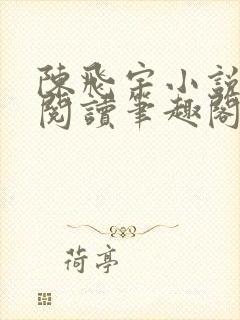 陳飛宇小說
閱讀筆趣閣
荷亭